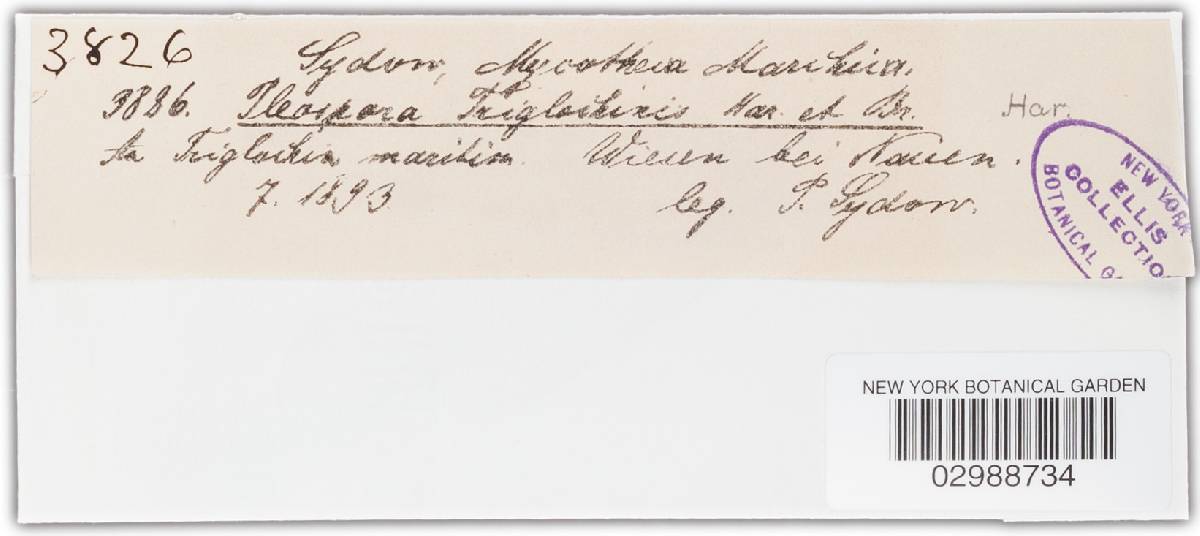 3826
Sydow, Mycotheca Marchica.
3826. Pleospora Triglochinis Har. et Br. Har.
An Triglochin maritim. Wiesen bei Nauen.
7. 1893 leg. P. Sydow.
NEW YORK
BOTANICAL GA
ELLIS
COLLECTIO
NEW YORK BOTANICAL GARDEN
02988734